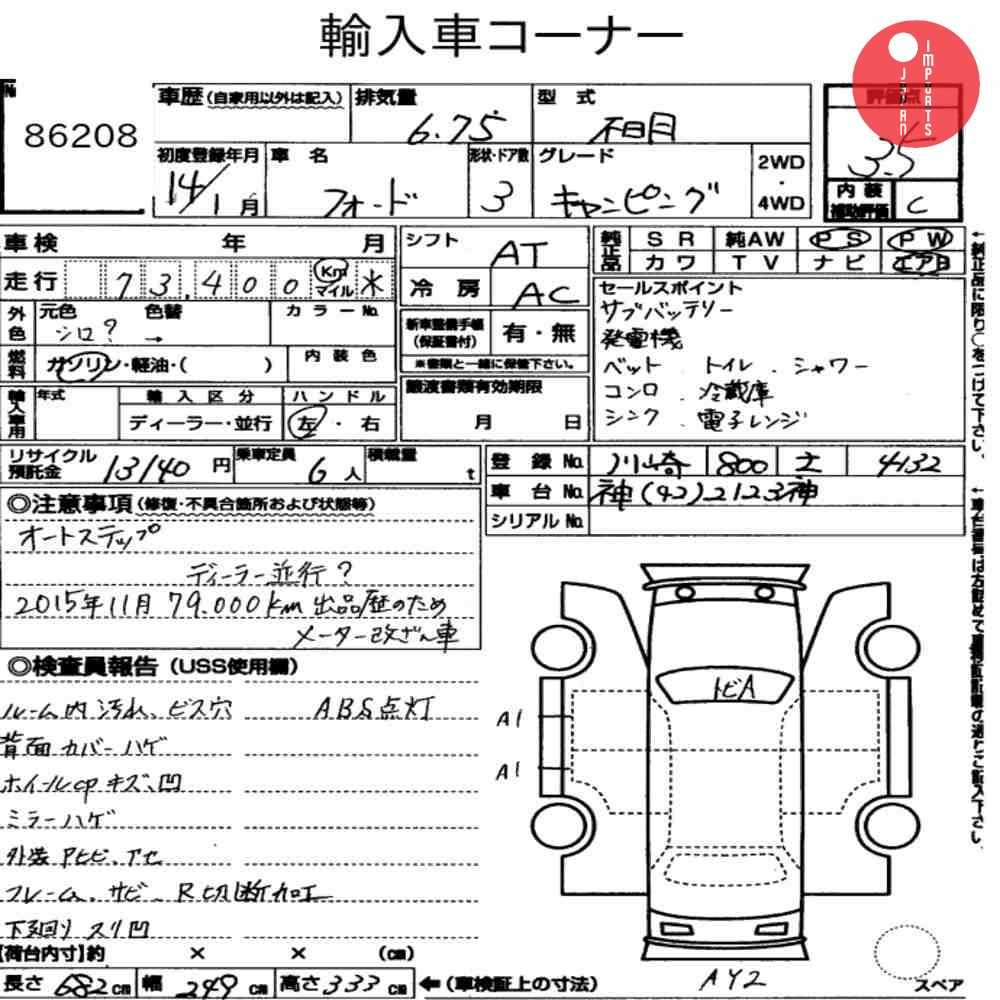 輸入車コーナー
JAPAN IMPORTS
№ 86208
車歴 (自家用以外は記入)
排気量 6.75
型式 不明
評価点 3.5
初度登録年月 14/1月
車名 フォード
形状・ドア数 3
グレード キャンピング
2WD・4WD
内装補助評価 C
車検 年 月
シフト AT
純正品 SR 純AW PS PW
カワ TV ナビ エアB
走行 73,400 Km マイル
冷房 AC
セールスポイント
サブバッテリー
発電機
ベット、トイレ、シャワー
コンロ、冷蔵庫
シンク、電子レンジ
外色 元色 シロ? 色替 → カラーNo.
新車整備手帳(保証書付) 有・無
※書類と一緒に保管下さい。
燃料 ガソリン・軽油・( ) 内装色
譲渡書類有効期限 月 日
輸入車用 年式 輸入区分 ディーラー・並行 ハンドル 左・右
←純正品に限り○をつけて下さい。
リサイクル預託金 13140円 乗車定員 6人 積載量 t
登録No. 川崎 800 4132
車台No. 神(42)2123神
シリアルNo.
◎注意事項 (修復・不具合箇所および状態等)
オートステップ
ディーラー並行?
2015年11月 79.000km 出品歴のため
メーター改ざん車
◎検査員報告 (USS使用欄)
ルーム内汚れ、ビス穴 ABS点灯
背面カバーハゲ
ホイールcpキズ、凹
ミラーハゲ
外装
フレーム、サビ、R切断加工
下廻りスリ凹
トビA
A1
A1
AY2
スペア
【荷台内寸】約 × × (cm)
長さ 682cm 幅 249cm 高さ 333cm ←(車検証上の寸法)